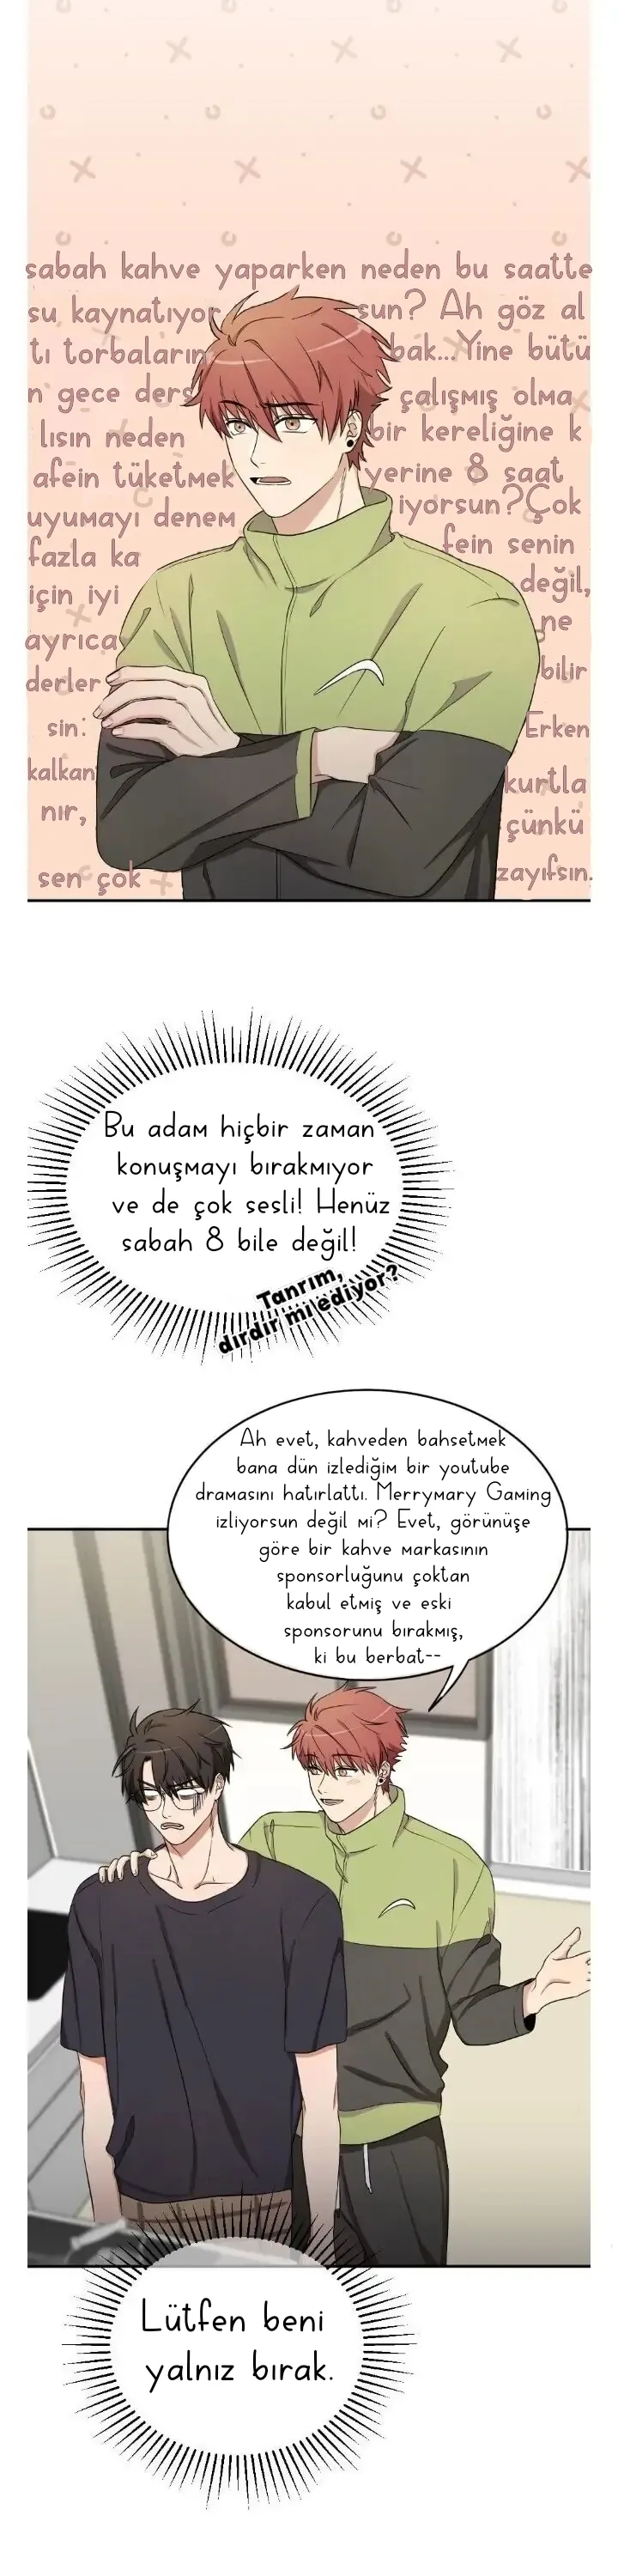 sabah kahve yaparken neden bu saatte
su kaynatıyor sun? Ah göz al
tı torbaların bak...Yine bütü
n gece ders çalışmış olma
lısın neden bir kereliğine k
afein tüketmek yerine 8 saat
uyumayı denem iyorsun?Çok
fazla ka fein senin
için iyi değil,
ayrıca ne
derler bilir
sin: Erken
kalkan kurtla
nır, çünkü
sen çok zayıfsın.
Bu adam hiçbir zaman
konuşmayı bırakmıyor
ve de çok sesli! Henüz
sabah 8 bile değil!
Tanrım,
dırdır mı ediyor?
Ah evet, kahveden bahsetmek
bana dün izlediğim bir youtube
dramasını hatırlattı. Merrymary Gaming
izliyorsun değil mi? Evet, görünüşe
göre bir kahve markasının
sponsorluğunu çoktan
kabul etmiş ve eski
sponsorunu bırakmış,
ki bu berbat--
Lütfen beni
yalnız bırak.